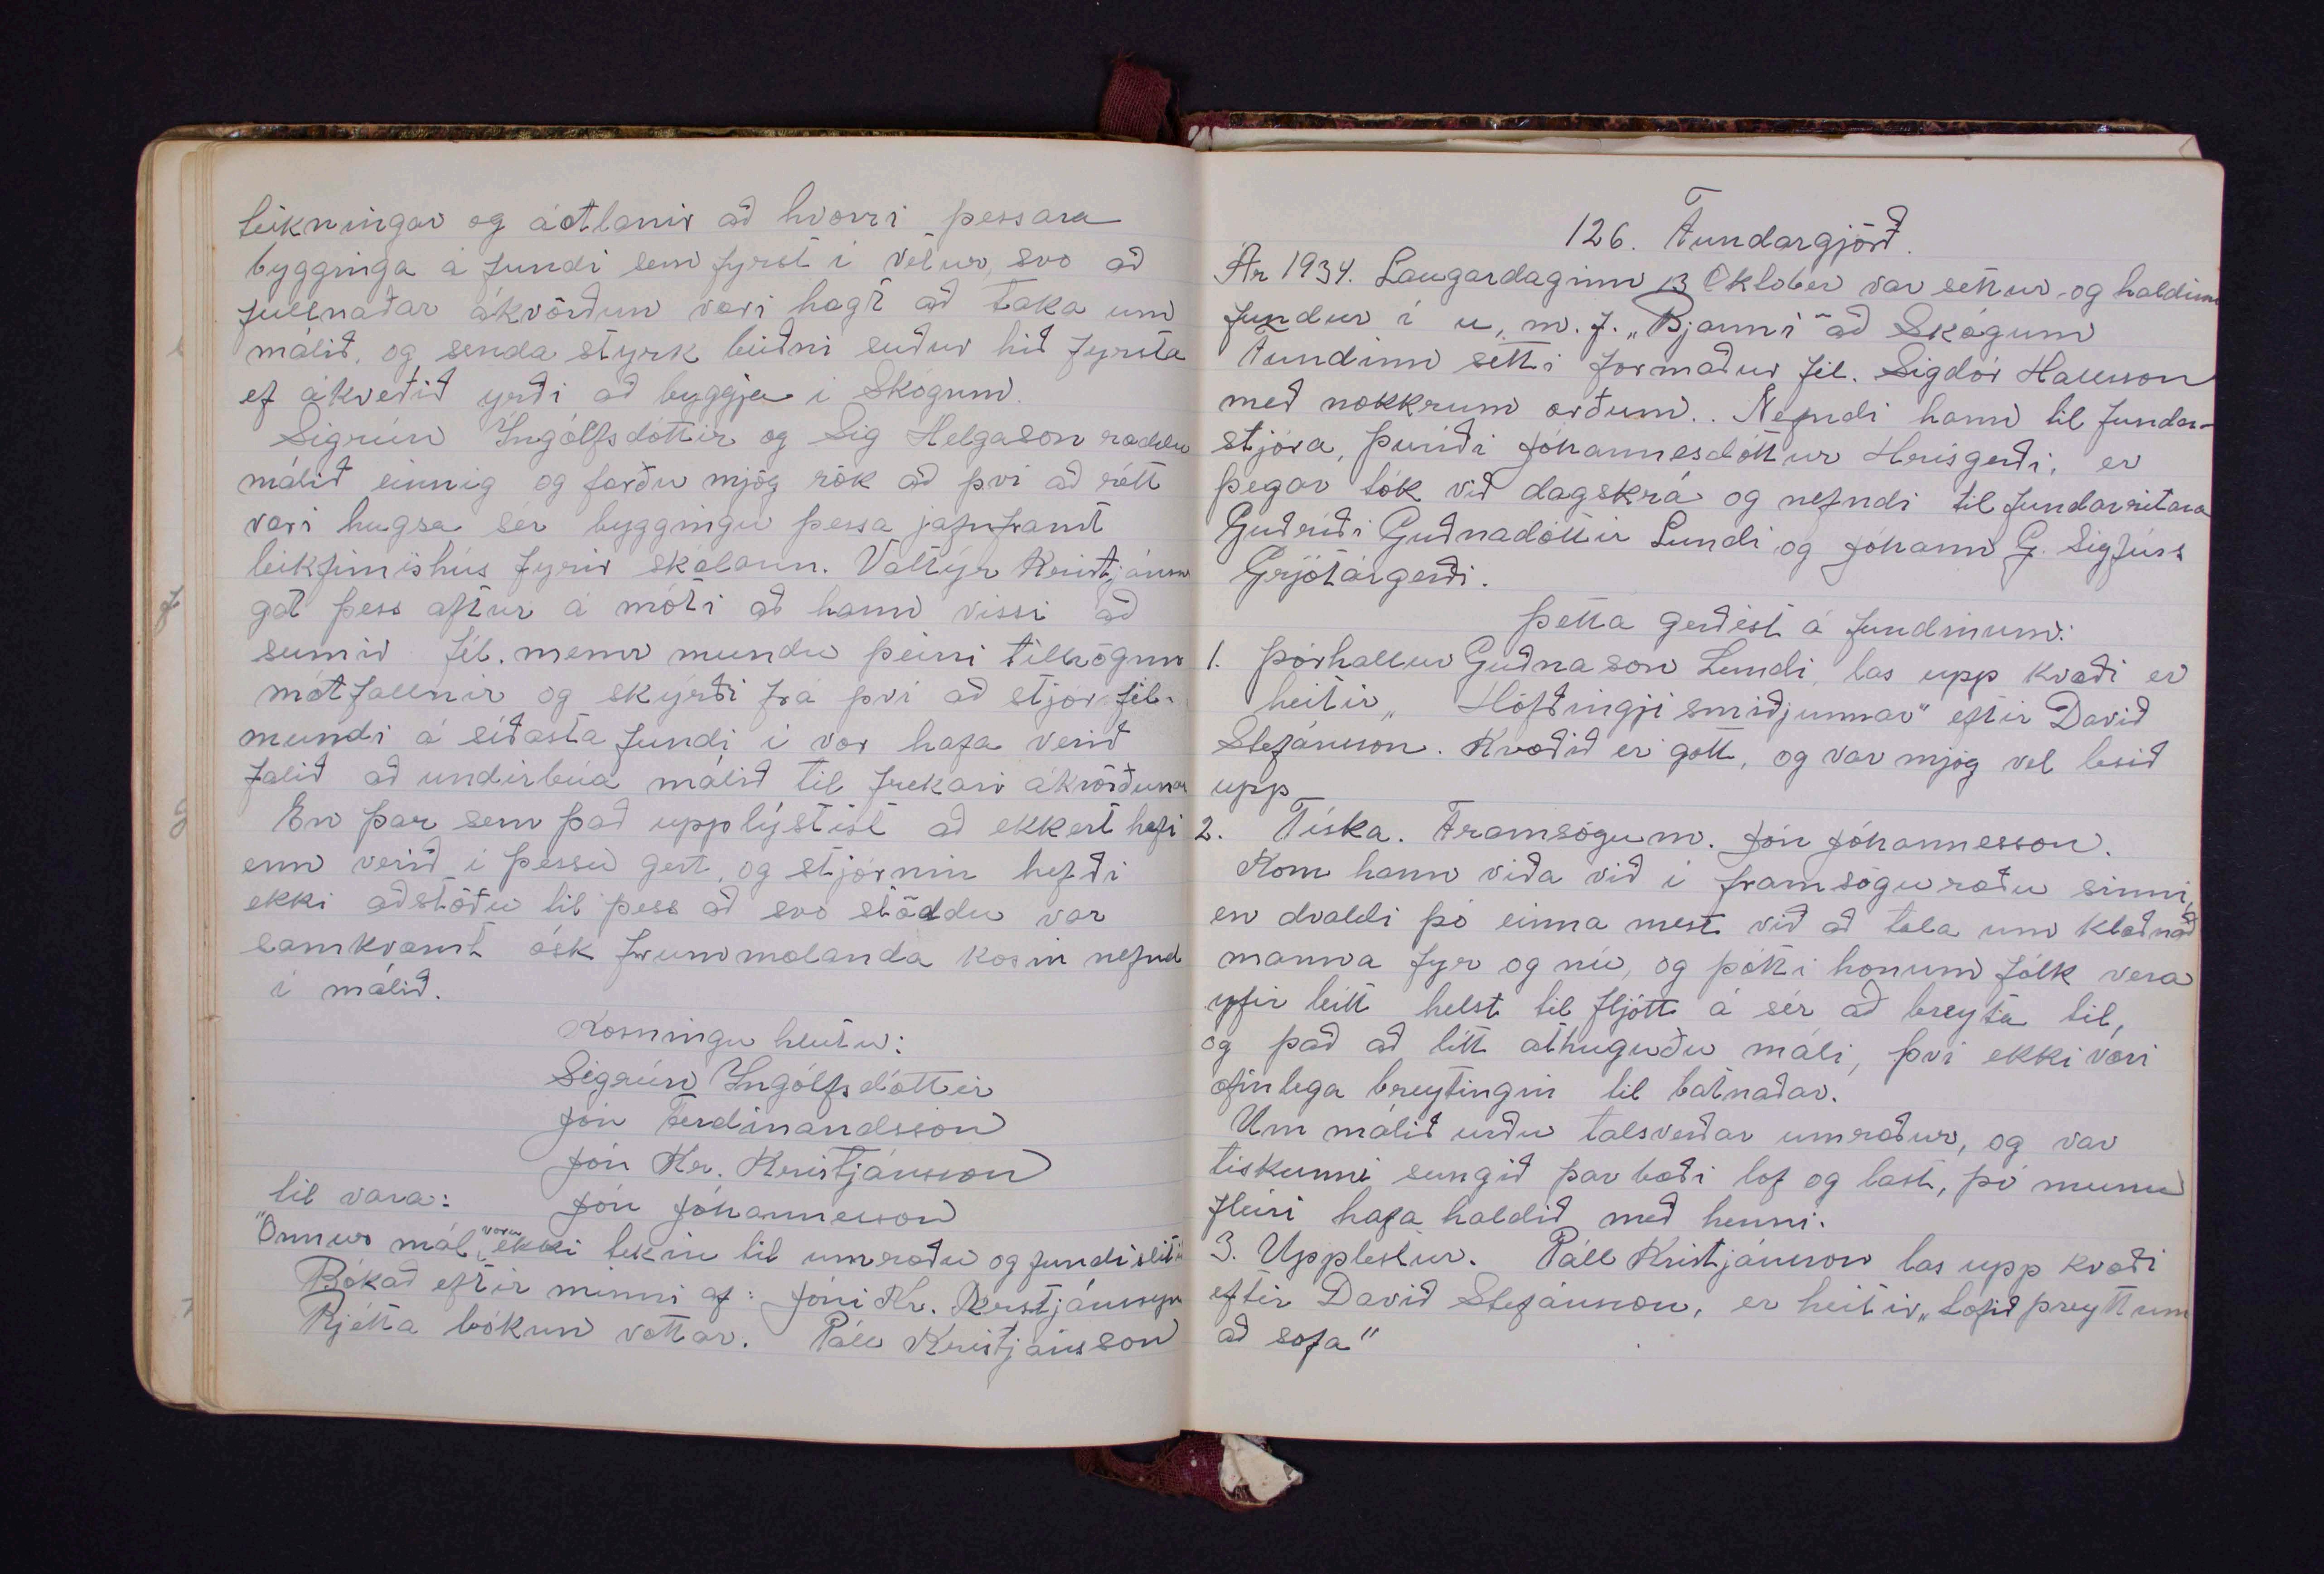 teikningar og áætlanir að hvorri þessara
bygginga á fundi sem fyrst í vetur, svo að
fullnaðar ákvörðun væri hægt að taka um
málið, og senda styrk beiðni suður hið fyrsta
ef ákveðið yrði að byggja í Skógum.
Sigrún Ingólfsdóttir og Sig Helgason ræddu
málið einnig og færðu mjög rök að því að rétt
væri hugsa sér byggingu þessa jafnframt
leikfimishús fyrir skólann. Valtýr Kristjánss
gat þess aftur á móti að hann vissi að
sumir fél. menn mundu þeirri tillögunn
mótfallnir og skýrði frá því að stjór fél.
mundi á síðasta fundi í vor hafa verið
falið að undirbúa málið til frekari ákvörðunar
En þar sem það upplýstist að ekkert hefi
enn verið í þessu gert, og stjórnin hefði
ekki aðstöðu til þess að svo stöddu var
samkvæmt ósk frummælanda kosin nefnd
í málið.
Kosningu hlutu:
Sigrún Ingólfsdóttir
Jón Ferdinandsson
Jón Kr. Kristjánsson
til vara: Jón Jóhannesson
Önnur mál voru ekki tekin til umræðu og fundi slitið
Bókað eftir minni af: Jóni Kr. Kristjánssyni
Rjétta bókun vottar. Páll Kristjánsson
126. Fundargjörð.
Ár 1934. Laugardaginn 13 Október var settur og haldinn
fundur í u, m. f. „Bjarmi" að Skógum
Fundinn setti formaður fél. Sigdór Hallsson
með nokkrum orðum.. Nefndi hann til fundar-
stjóra, Þuríði Jóhannesdóttur Hrísgerði, er
þegar tók við dagskrá og nefndi til fundarritara
Guðríði Guðnadóttir Lundi og Jóhann G. Sigfúss
Grjótárgerði.
Þetta gerðist á fundinum:
1. Þórhallur Guðnason Lundi, las upp kvæði er
heitir „Höfðingji smiðjunnar" eftir Davið
Stefánsson. Kvæðið er gott, og var mjög vel lesið
upp
2. Tíska. Framsögum. Jón Jóhannesson.
Kom hann víða við í framsöguræðu sinni,
en dvaldi þó einna mest við að tala um klæðnað
manna fyr og nú, og þótti honum fólk vera
yfir leitt helst til fljótt á sér að breyta til,
og það að lítt athuguðu máli, því ekki væri
æfinlega breytingin til batnaðar.
Um málið urðu talsverðar umræður, og var
tískunni sungið þar bæði lof og last, þó munu
fleiri hafa haldið með henni.
3. Upplestur. Páll Kristjánsson las upp kvæði
eftir Davið Stefánsson, er heitir „Lofið þreyttum
að sofa"